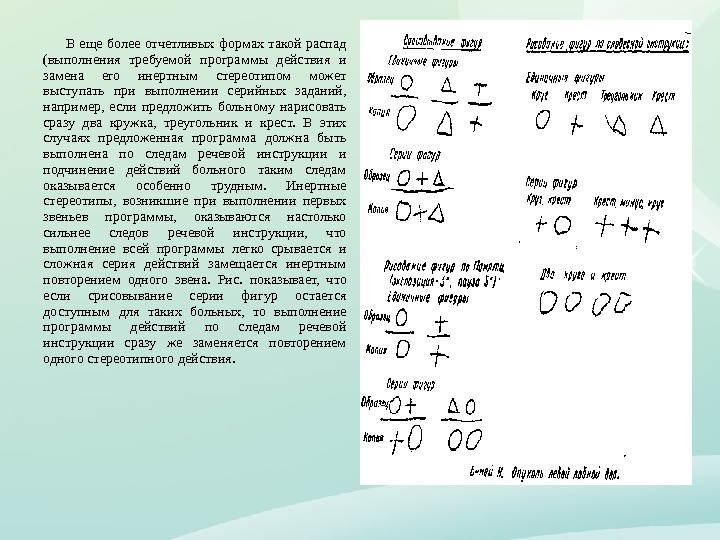 В еще более отчетливых формах такой распад
(выполнения требуемой программы действия и
замена его инертным стереотипом может
выступать при выполнении серийных заданий,
например, если предложить больному нарисовать
сразу два кружка, треугольник и крест. В этих
случаях предложенная программа должна быть
выполнена по следам речевой инструкции и
подчинение действий больного таким следам
оказывается особенно трудным. Инертные
стереотипы, возникшие при выполнении первых
звеньев программы, оказываются настолько
сильнее следов речевой инструкции, что
выполнение всей программы легко срывается и
сложная серия действий замещается инертным
повторением одного звена. Рис. показывает, что
если срисовывание серии фигур остается
доступным для таких больных, то выполнение
программы действий по следам речевой
инструкции сразу же заменяется повторением
одного стереотипного действия.
Срисовывание фигур
Единичные фигуры
Образец
Копия
Серии фигур
Образец
Копия
Рисование фигур по памяти
(экспозиция-5", пауза 5")
Единичные фигуры
Образец
Копия
Серии фигур
Образец
Копия
Рисование фигур по словесной инструкции
Единичные фигуры
Круг Крест Треугольник Крест
Серии фигур
Круг, крест Крест минус, круг
Два круга и крест
Опухоль левой лобной дол.